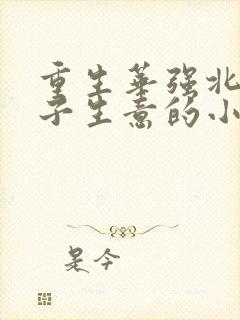 重生华强北
子生意的小
是今